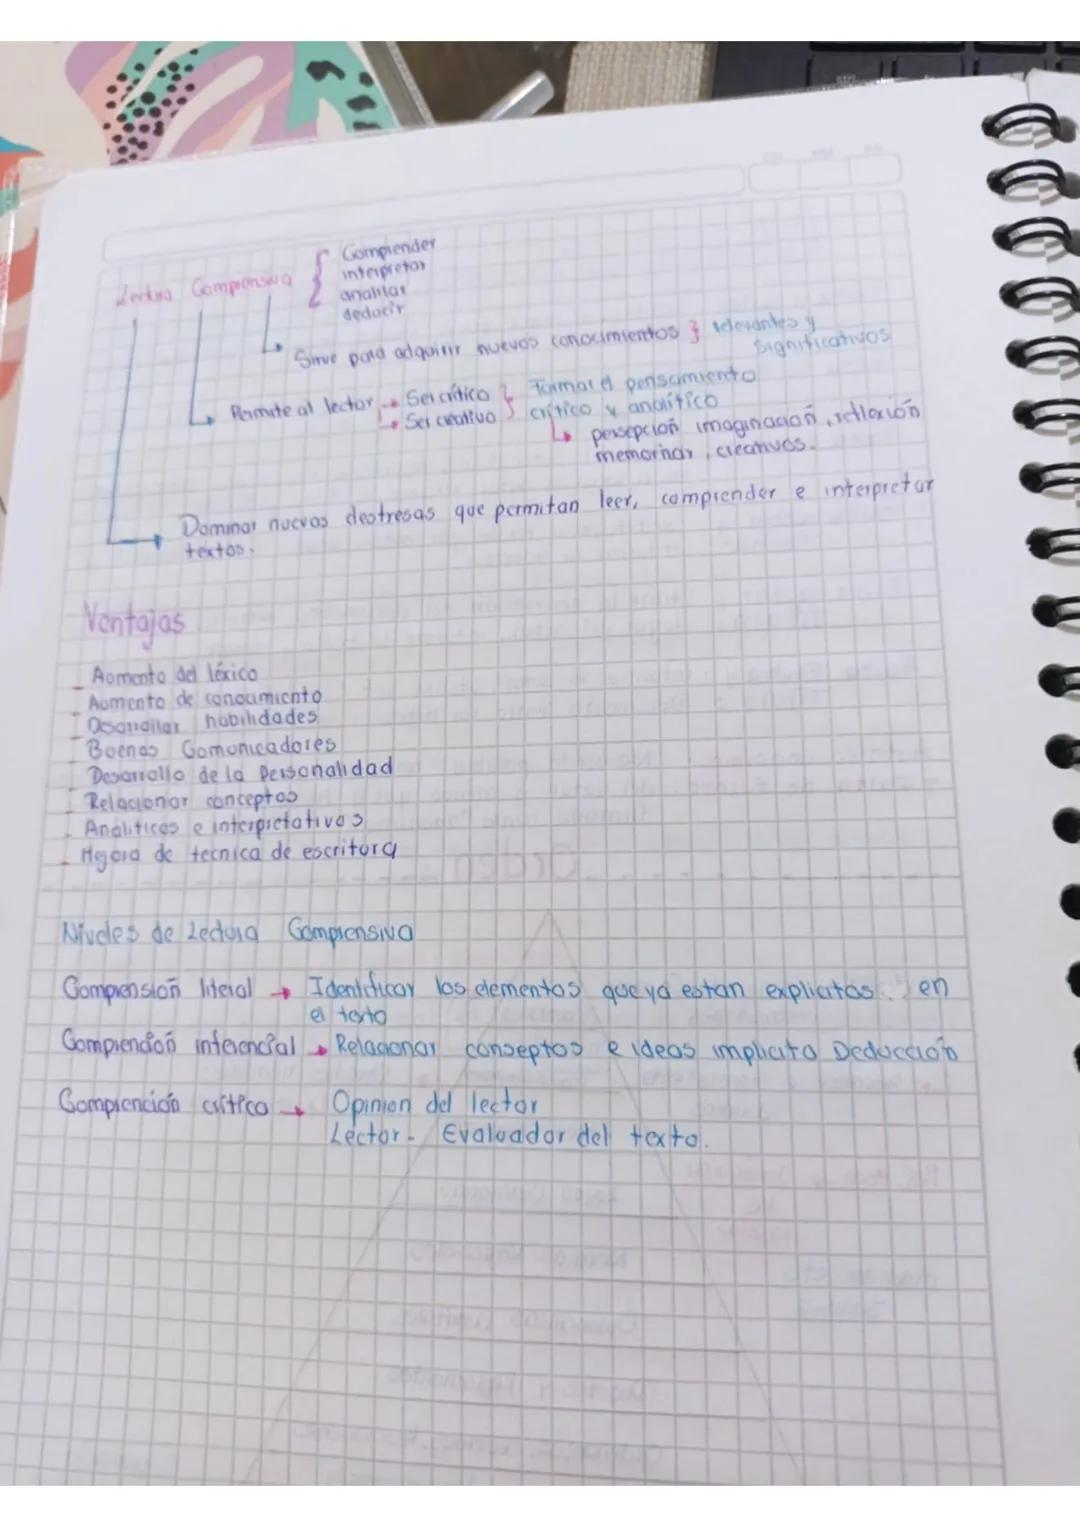 Lectura Comprensiva { Comprender
interpretar
analizar
deducir
Sirve para adquirir nuevos conocimientos } relevantes y
Significativos
Permite al lector → Ser crítico } Formar el pensamiento
→ Ser creativo } crítico y analítico
→ persepción imaginación, reflexión
memorizar, creativos.
Dominar nuevas destresas que permitan leer, comprender e interpretar
textos.
Ventajas
_ Aumento del léxico
_ Aumento de conocimiento
_ Desarrollar habilidades
_ Buenos Comunicadores
_ Desarrollo de la Personalidad
_ Relacionar conceptos
_ Analíticos e interpretativos
_ Mejora de tecnica de escritura
Niveles de Lectura Comprensiva
Comprensión literal → Identificar los elementos que ya estan explicitos en
el texto
Comprención inferencial → Relacionar conseptos e ideas implicito Deducción
Comprención crítico → Opinion del lector
Léctor - Evaluador del texto.